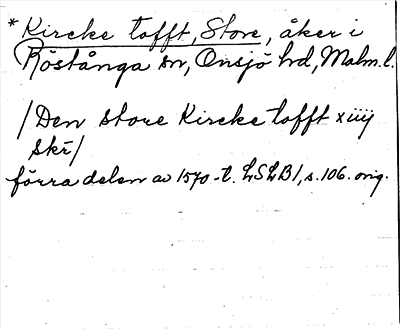 * Kircke tofft, Store, åker i
Röstånga sn, Onsjö hd, Malm. l.
/Den store Kircke tofft xiiij
skr/
förra delen av 1570-t. LSLB1, s. 106. orig.